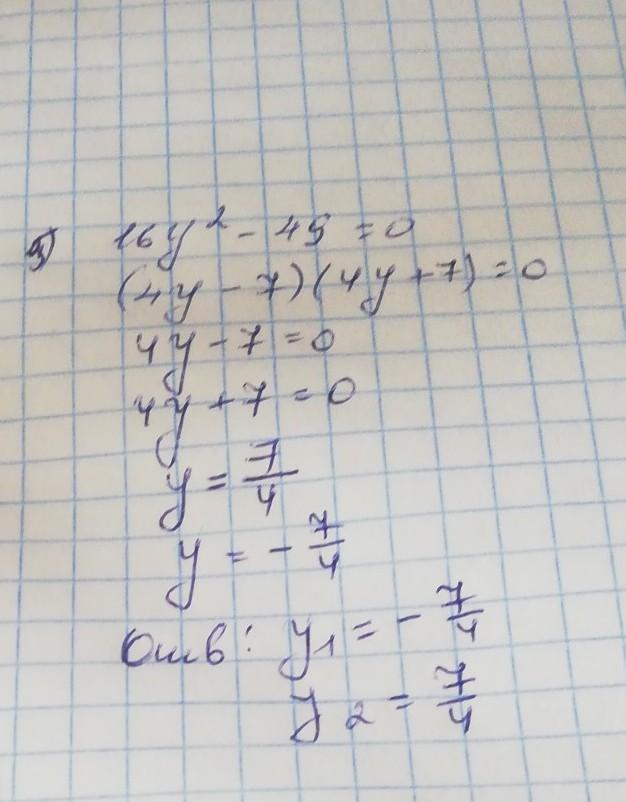 5) 16y² - 49 = 0
(4y - 7)(4y + 7) = 0
4y - 7 = 0
4y + 7 = 0
y = 7/4
y = - 7/4
Отв: y₁ = - 7/4
y₂ = 7/4